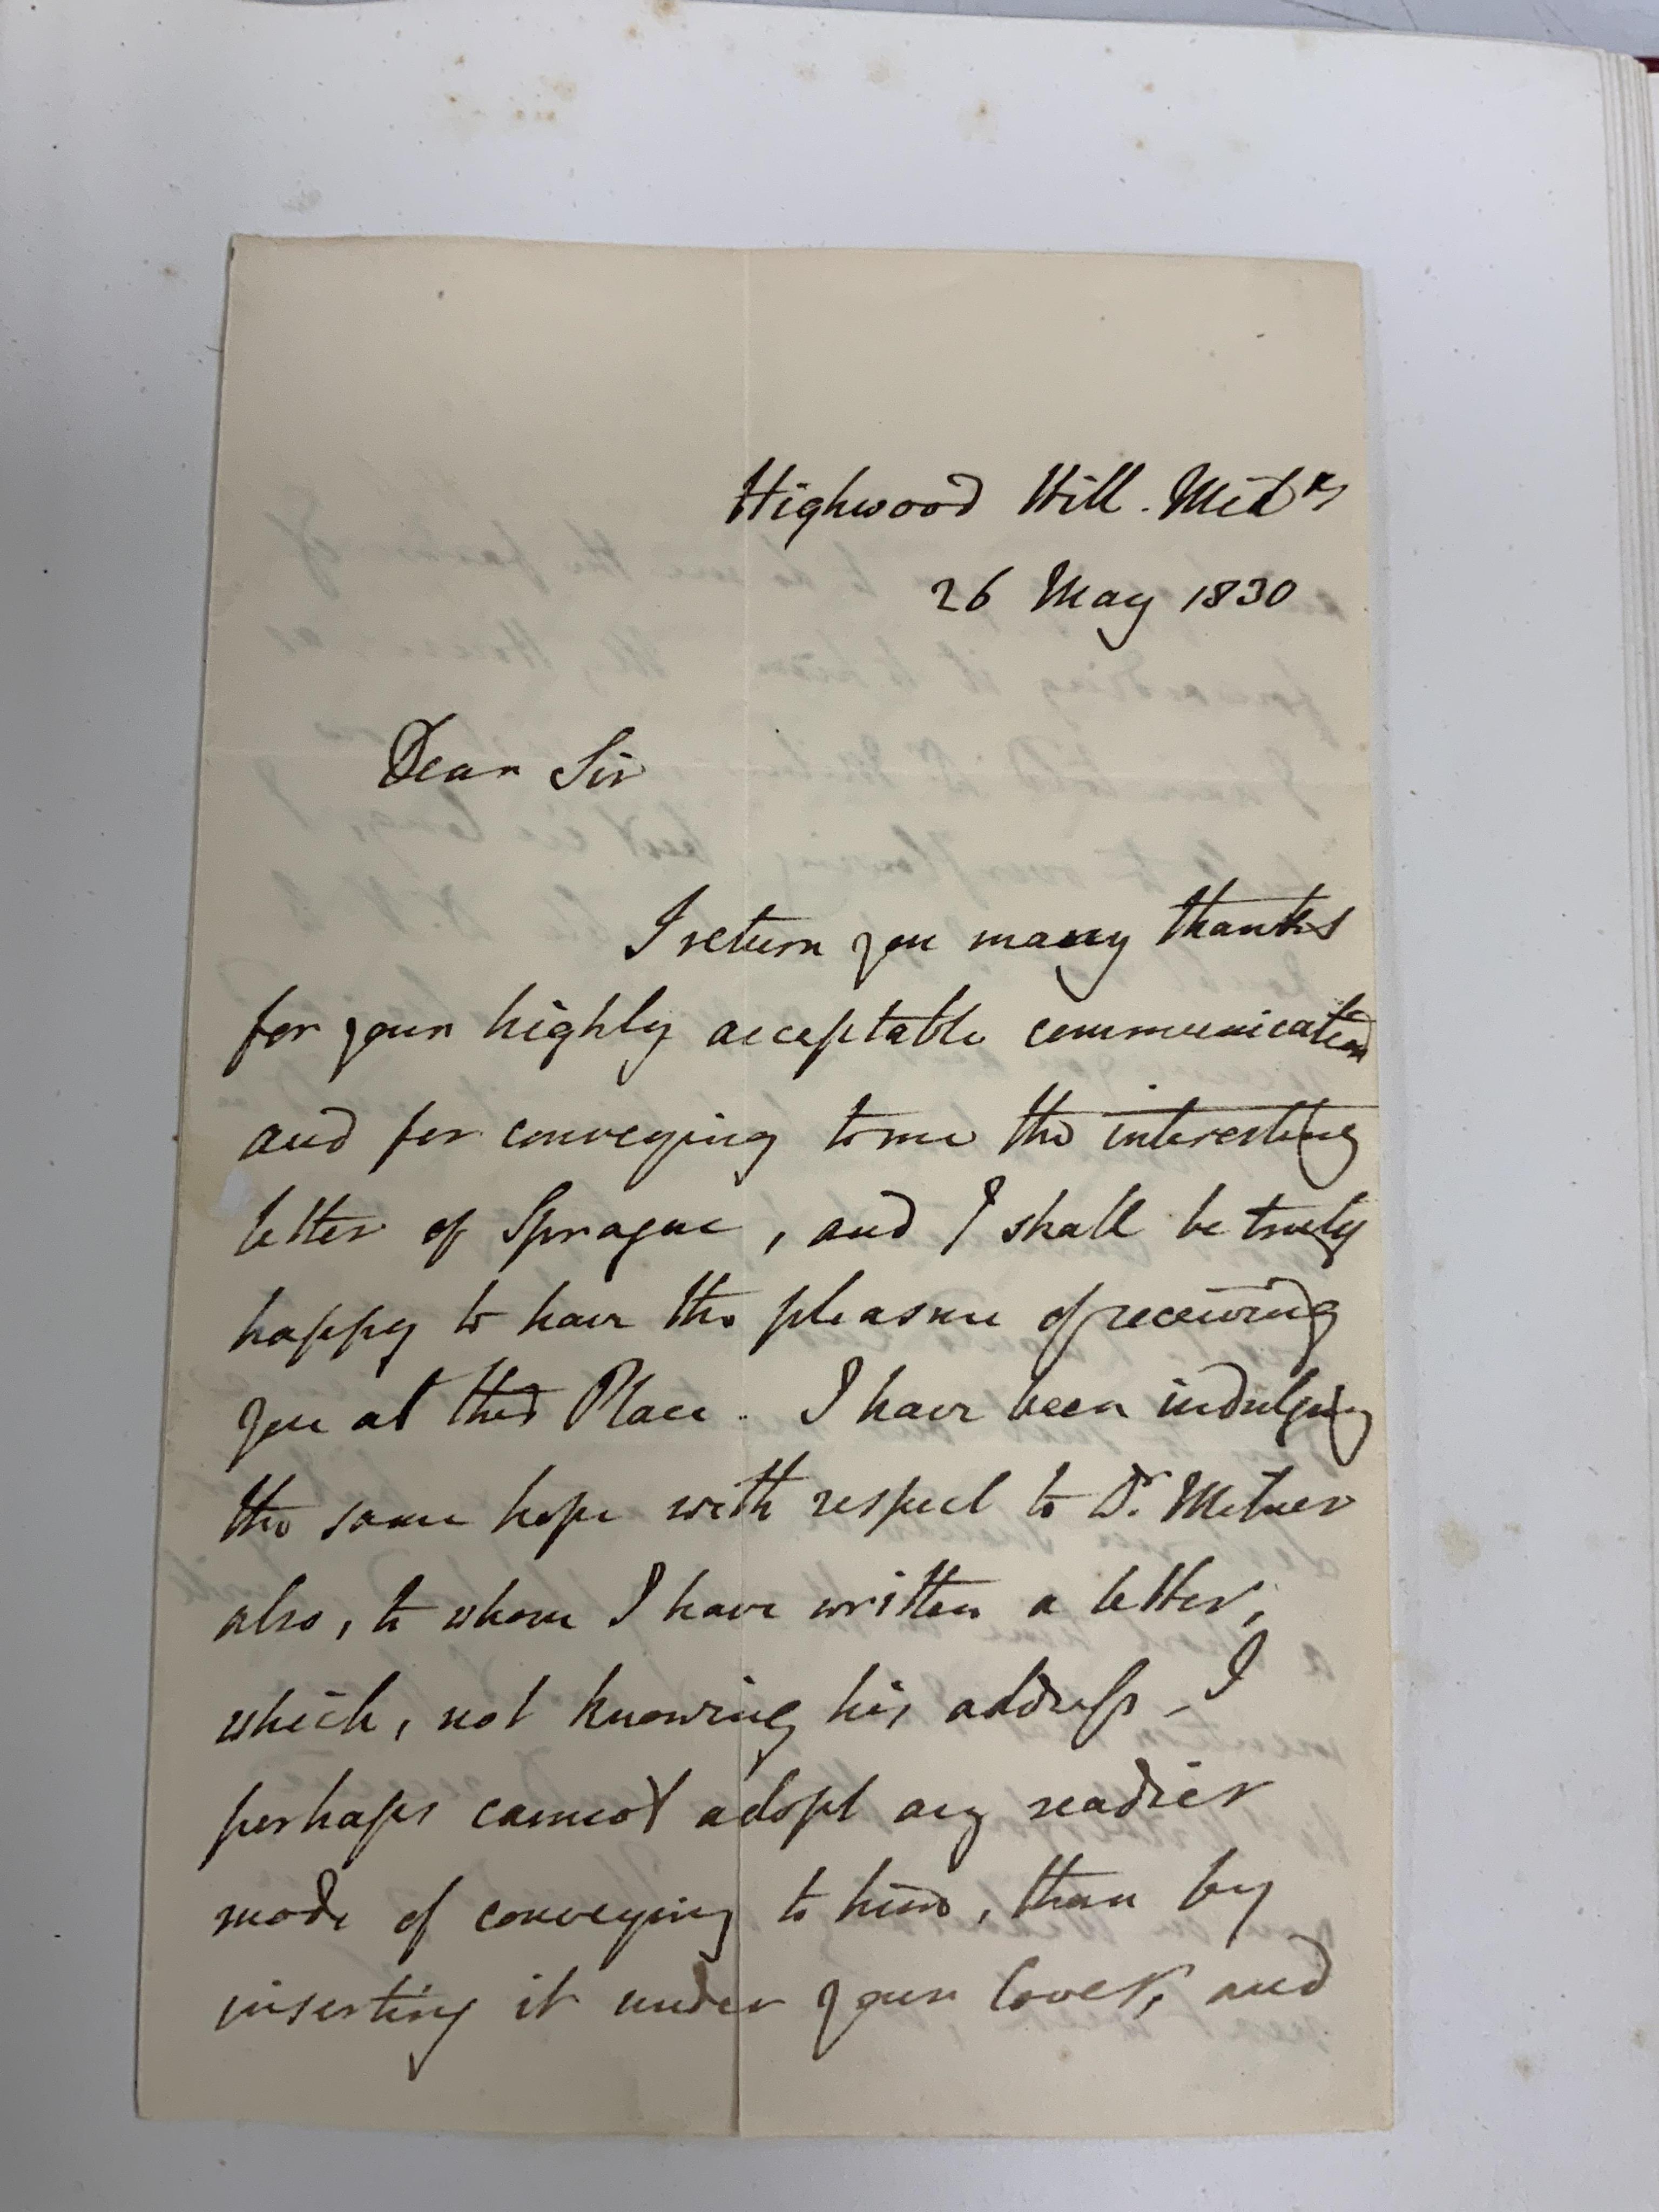 Highwood Hill. Midx
26 May 1830
Dear Sir
I return you many thanks
for your highly acceptable communication
and for conveying to me the interesting
letter of Sprague, and I shall be truly
happy to have the pleasure of receiving
you at this Place. I have been indulging
the same hope with respect to Dr. Milner
also, to whom I have written a letter,
which, not knowing his address, I
perhaps cannot adopt any readier
mode of conveying to him, than by
inserting it under your Cover, and